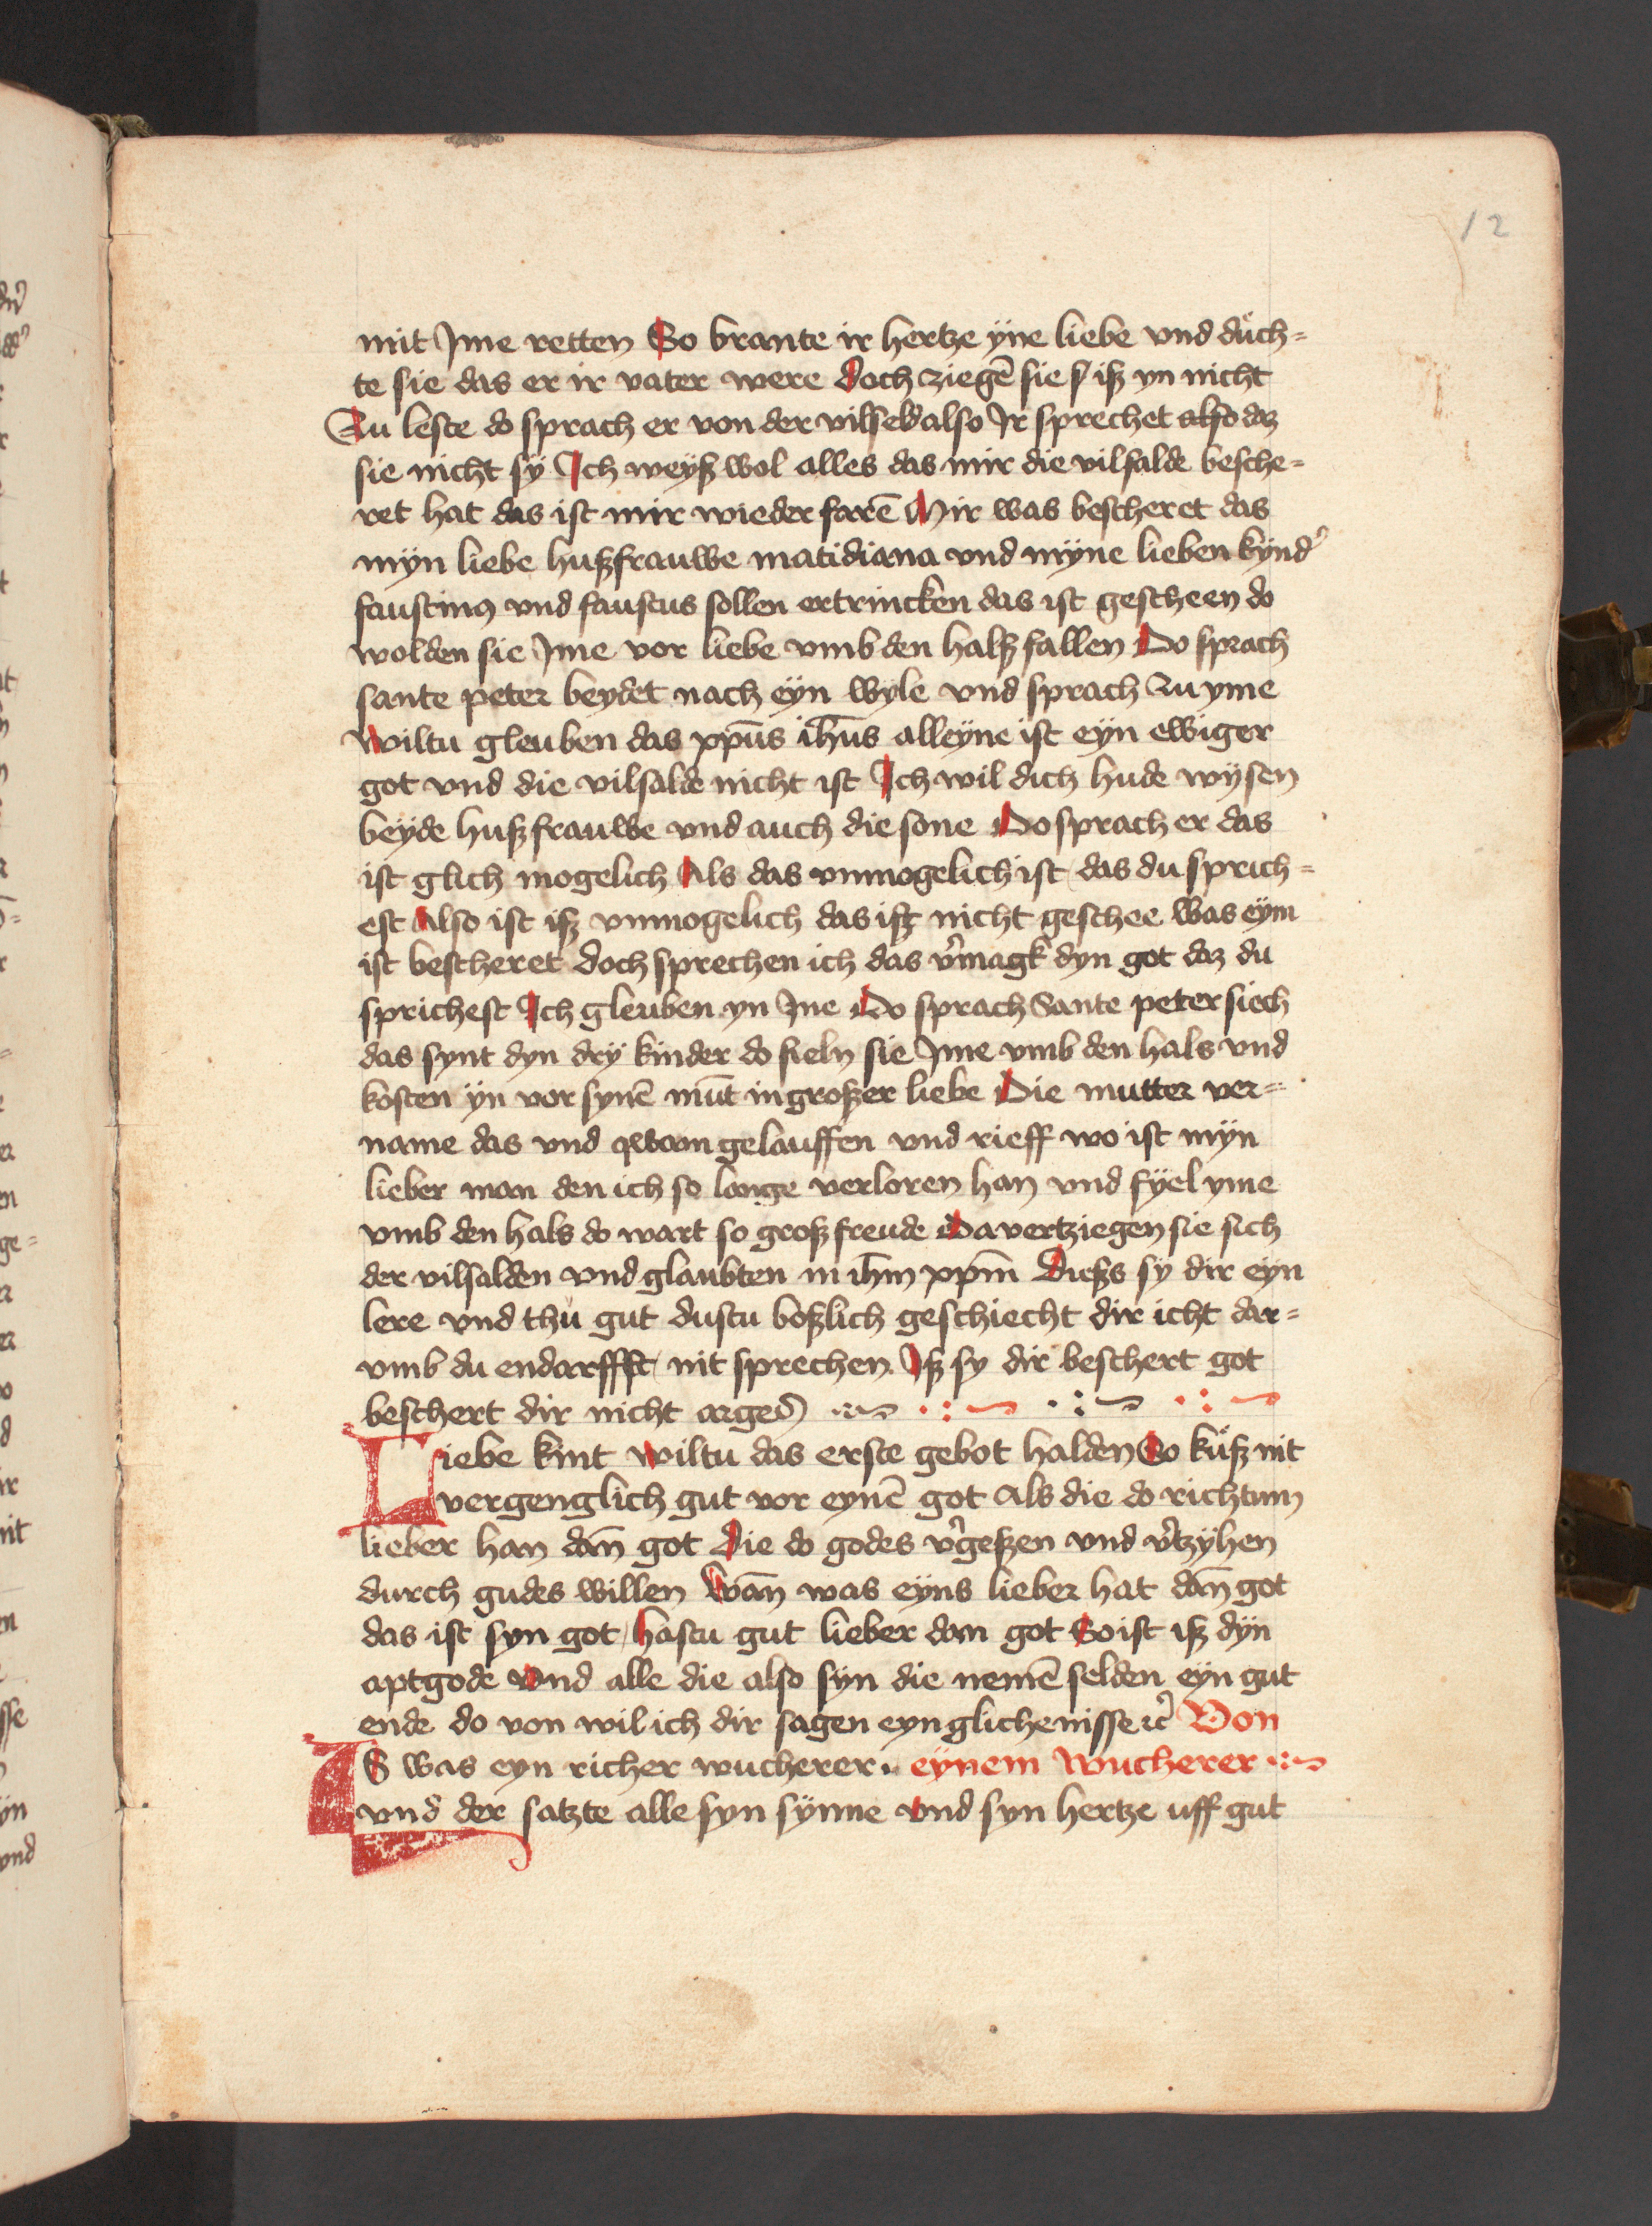 12
mit Jme retten So brante ir hertze ÿne liebe vnd duch=
te sie das er ir vater were Doch ziegē sie iß yn nicht
Zu leste do sprach er von der vilseld also Jr sprechet also dz
sie nicht sÿ Ich weÿß wol alles das mir die vilsalde besche=
ret hat das ist mir wieder farē Mir was bescheret das
mÿn liebe hußfrauwe matidiana vnd mÿne lieben kÿnd
faustinꝰ vnd faustus sollen ertrincken das ist gescheen do
wolden sie Jme vor liebe vmb den halß fallen Do sprach
sante peter beydet nach eÿn wÿle vnd sprach zu yme
Wiltu gleuben das xp̄us ih̄us alleÿne ist eÿn ewiger
got vnd die vilsalde nicht ist Ich wil dich hude wÿsen
beÿde hußfrauwe vnd auch die sone Do sprach er das
ist glich mogelich Als das vnmogelich ist das du sprich=
est Also ist iß vnmogelich das ißt nicht geschee was eÿm
ist bescheret doch sprechen ich das v'magk dyn got dz du
sprichest Ich gleuben yn Jne Do sprach Sante peter siech
das synt dyn drÿ kinder do fieln sie Jme vmb den hals vnd
kosten ÿn vor synē mūt in großer liebe Die mutter ver=
name das vnd qwam gelauffen vnd rieff wo ist mÿn
lieber man den ich so lange verloren han vnd fÿel yme
vmb den hals do wart so groß freude Da vertziegen sie sich
der vilsalden vnd glaubten in ih̄m xp̄m Dießs sÿ dir eÿn
lere vnd thu gut dustu boßlich geschiecht dir icht dar=
vmb du endarffft nit sprechen Iß sy dir beschert got
beschert dir nicht arges
Liebe kint wiltu das erste gebot halden So kuß nit
vergenglich gut vor eynē got Als die do richtum
lieber han dan̄ got Die do godes v'geßen vnd v'tzÿhen
durch gudes willen Wan̄ was eÿns lieber hat dan̄ got
das ist syn got hastu gut lieber dan got So ist iß dÿn
aptgode Vnd alle die also sÿn die nemē selden eÿn gut
ende do von wil ich dir sagen eyn glichenisse ꝛc Von
Es was eyn richer wucherer eÿnem wucherer
vnd der satzte alle syn sÿnne vnd syn hertze uff gut